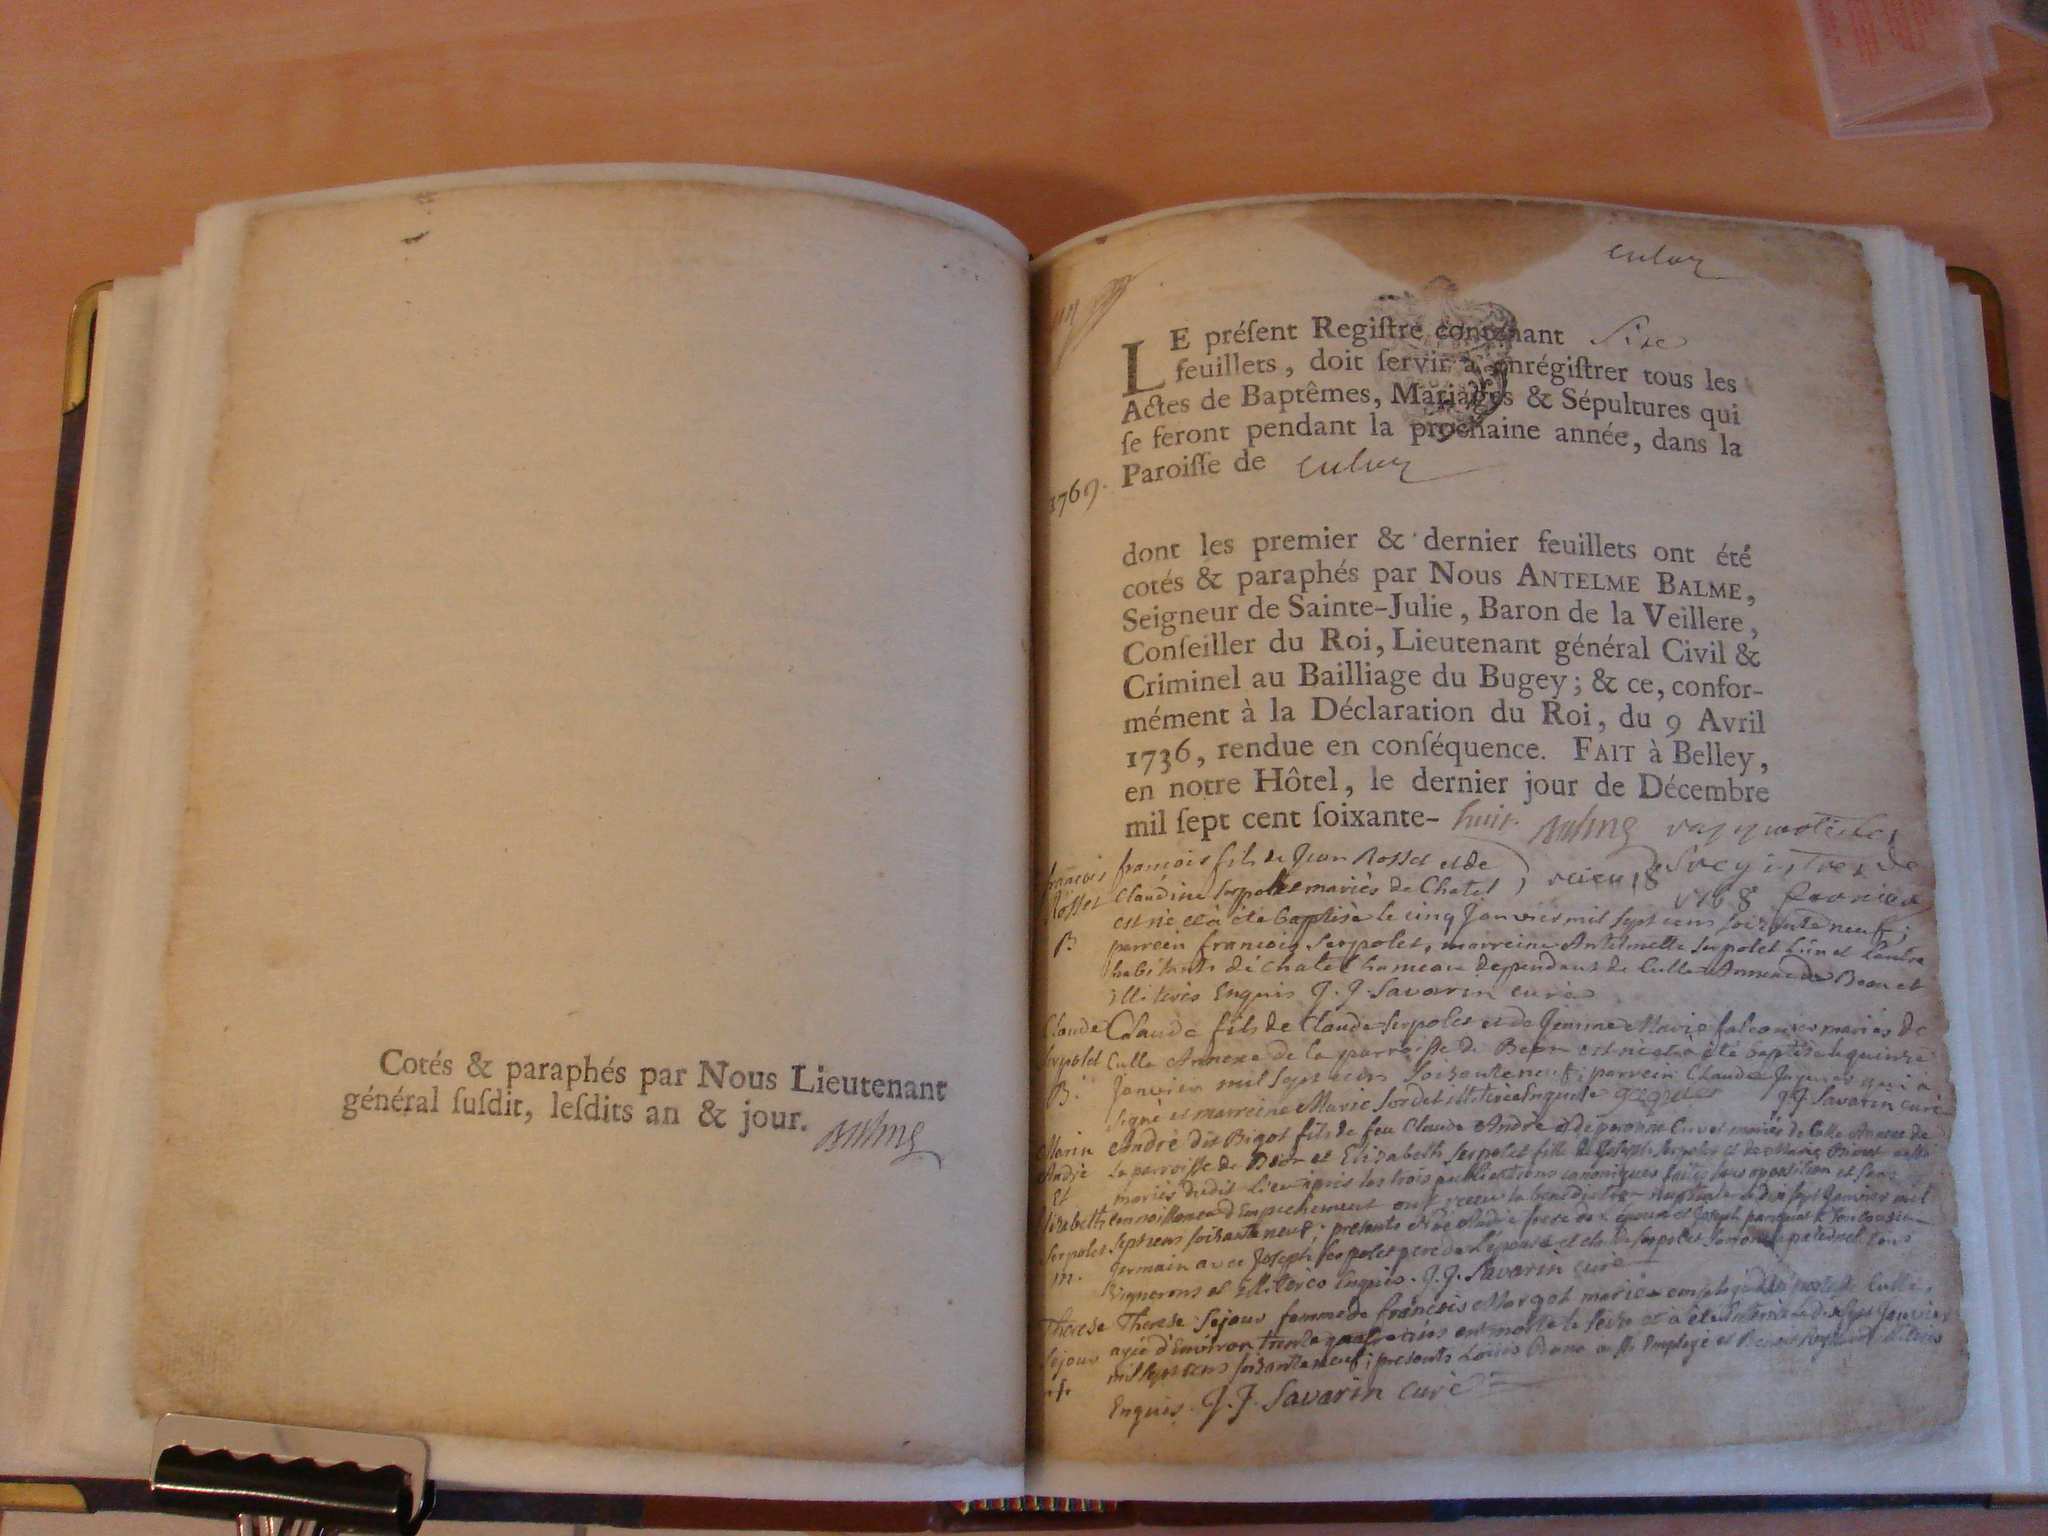 Cotés & paraphés par Nous Lieutenant
général ſuſdit, leſdits an & jour.
culoz
LE préſent Regiſtre contenant Six
feuillets, doit ſervir à enrégiſtrer tous les
Actes de Baptêmes, Mariages & Sépultures qui
ſe feront pendant la prochaine année, dans la
Paroiſſe de culoz
1769.
dont les premier & dernier feuillets ont été
cotés & paraphés par Nous ANTELME BALME,
Seigneur de Sainte-Julie, Baron de la Veillere,
Conſeiller du Roi, Lieutenant général Civil &
Criminel au Bailliage du Bugey; & ce, confor-
mément à la Déclaration du Roi, du 9 Avril
1736, rendue en conſéquence. FAIT à Belley,
en notre Hôtel, le dernier jour de Décembre
mil ſept cent ſoixante- huit.
françois
Rosset
B
françois fils de Jean Rosset et de
Claudine Serpolet mariés de Chatel
est né et à été baptisé le cinq Janvier mil sept cens soixante neuf;
parrein francois Serpolet, marreine Antelmette Serpolet l'un et l'autre
habitants de Chatel hameau dependant de Culle Annexe de Beon et
illiterés Enquis J. J. Savarin curé
Claude
Serpolet
B.
Claude fils de Claude Serpolet et de Jeanne Marie falconier mariés de
Culle Annexe de la parroisse de Beon est né et à été baptisé le quinze
Janvier mil sept cens soixante neuf; parrein Claude Jaques qui à
signé et marreine Marie Sordet illiterée Enquise J. J. Savarin curé
Marin
André
Et
Elizabeth
Serpolet
m.
André dit Bigot fils de feu Claude André et de peronne mariés de Culle Annexe de
la parroisse de Beon et Elizabeth Serpolet fille de Joseph Serpolet et de Marie
mariés dudit lieu après les trois publications canoniques faites sans oposition et sans
connoissance d'Empechement ont receu la benediction nuptiale le dix sept Janvier mil
sept cens soixante neuf; presents André frere de l'epoux et Joseph
germain avec Joseph Serpolet pere de l'épouse et Claude Serpolet son oncle paternel tous
vignerons et illiterés enquis. J. J. Savarin curé
Therese
Sejour
Therese Sejour femme de francois Margot mariés employé de Culle,
agée d'Environ trente quatre ans est morte le seize et à été enterrée le dix sept Janvier
mil sept cens soixante neuf; presents Louis aussi Employé et illiterés
Enquis. J. J. Savarin curé